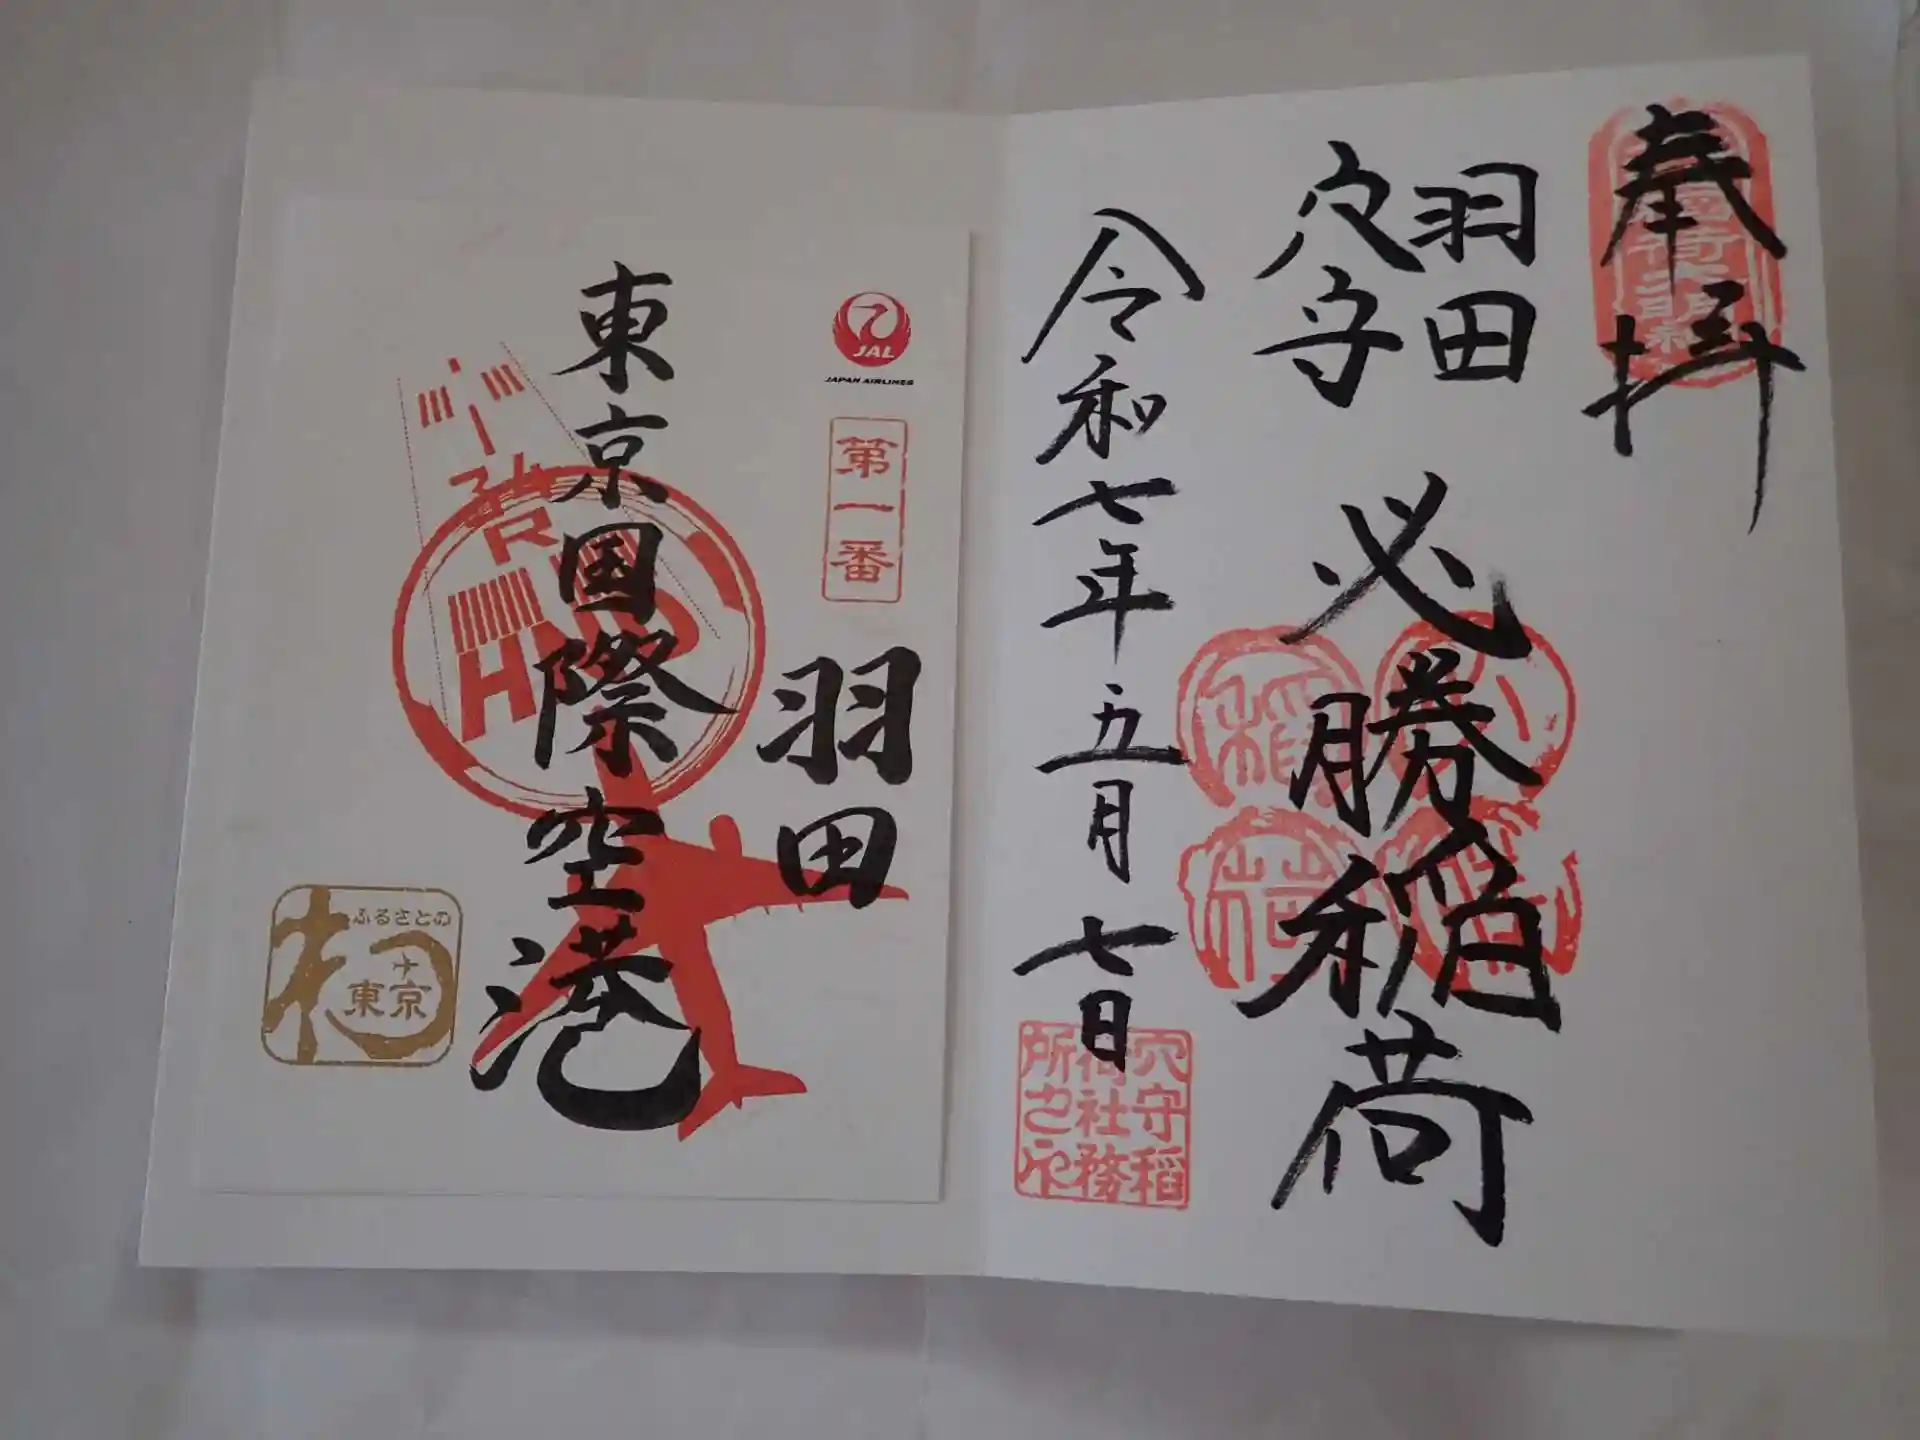 奉拝
羽田
穴守
必勝稲荷
令和七年五月七日
穴守稲
荷社務
所之印
JAL
JAPAN AIRLINES
第一番
羽田
東京国際空港
HND
ふるさとの
東京